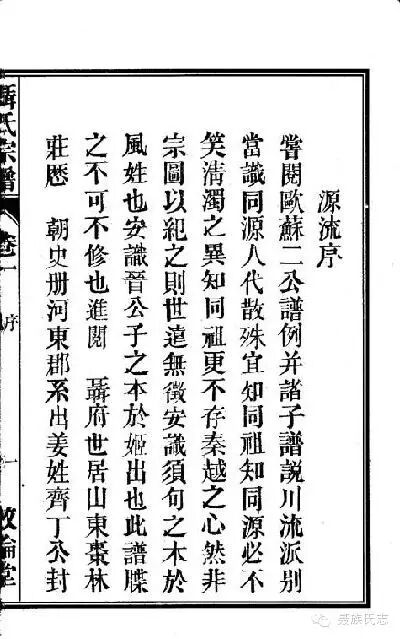 源流序
嘗閱歐蘇二公譜例并諸子譜說川流派別
當識同源人代散殊宜知同祖知同源必不
笑淸濁之異知同祖更不存秦越之心然非
宗圖以紀之則世遠無徵安識須句之本於
風姓也安識晉公子之本於姬出也此譜牒
之不可不修也進閱 聶府世居山東棗林
莊歷 朝史册河東郡系出姜姓齊丁公封
聶氏宗譜 卷一 序 一 敦倫堂
聂族氏志